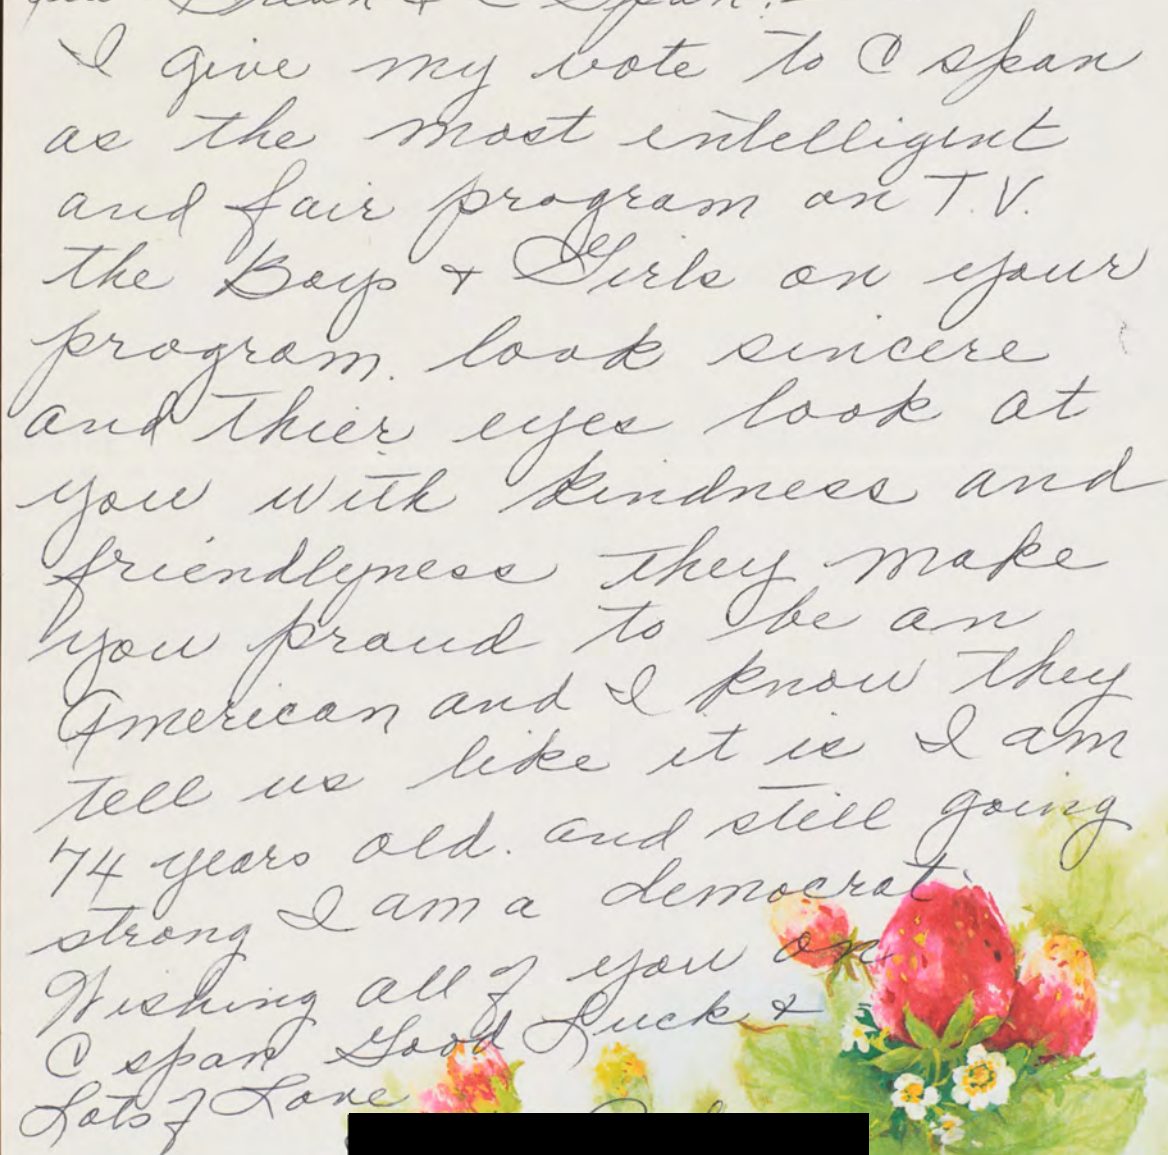 & C Span.
I give my vote to C span
as the most intelligent
and fair program on T.V.
the Boys & Girls on your
program. look sincere
and thier eyes look at
you with kindness and
friendlyness they make
you proud to be an
American and I know they
tell us like it is I am
74 years old. and still going
strong I am a democrat
Wishing all of you on
C span Good Luck &
Lots of Love